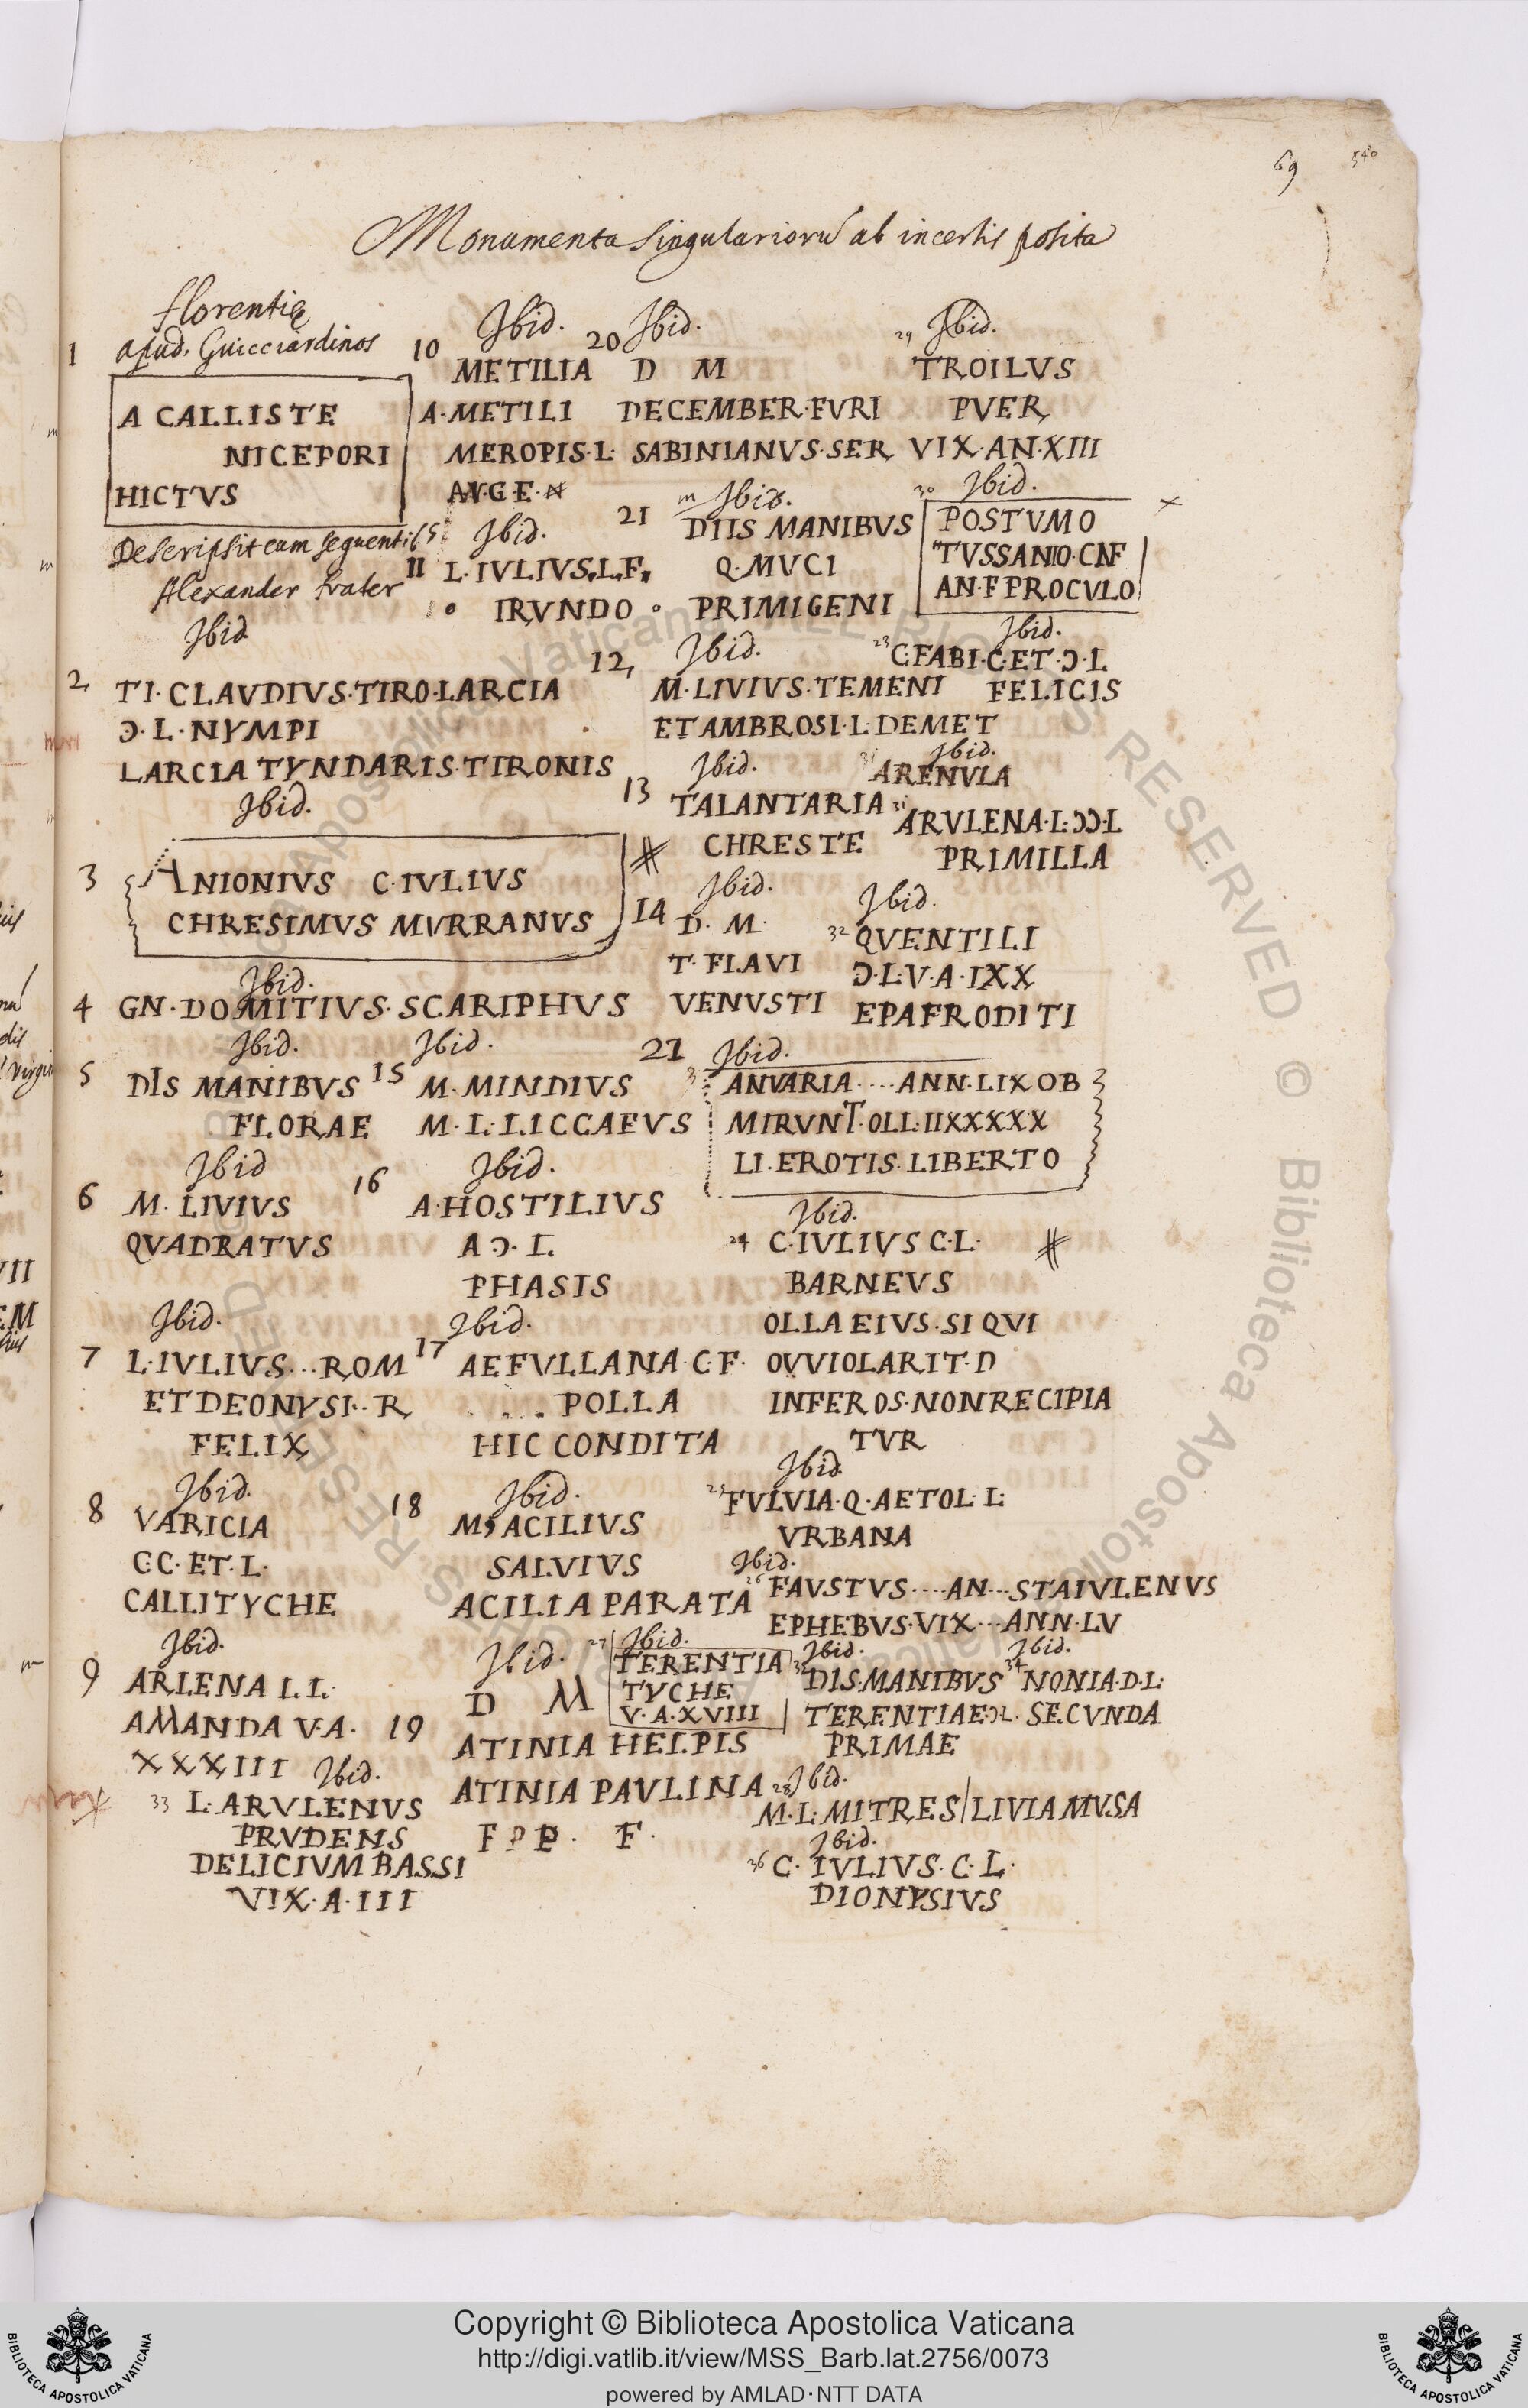 69
540
Monumenta singulariorũ ab incertis posita
florentię
1 apud. Guicciardinos
A CALLISTE
NICEPORI
HICTVS
Descripsit cum sequentib9
Alexander frater
Ibid
2 TI·CLAVDIVS·TIRO·LARCIA
Ɔ·L·NYMPI
LARCIA TYNDARIS·TIRONIS
Ibid.
3 ANIONIVS C·IVLIVS
CHRESIMVS MVRRANVS
Ibid.
4 GN·DOMITIVS·SCARIPHVS
Ibid.
5 DIS MANIBVS
FLORAE
Ibid
6 M·LIVIVS
QVADRATVS
Ibid.
7 L·IVLIVS...ROM
ET DEONYSI..R
FELIX
Ibid.
8 VARICIA
C·C·ET·L·
CALLITYCHE
Ibid.
9 ARLENA L L·
AMANDA V·A·
XXXIII
Ibid.
33 L·ARVLENVS
PRVDENS
DELICIVM BASSI
VIX·A·III
Ibid.
10 METILIA
A·METILI
MEROPIS·L·
AVGE·
Ibid.
11 L·IVLIVS·L·F·
IRVNDO
Ibid.
12 M·LIVIVS·TEMENI
ET AMBROSI·L·DEMET
Ibid.
13 TALANTARIA
CHRESTE
Ibid.
14 D·M·
T·FLAVI
VENVSTI
Ibid.
15 M·MINDIVS
M·L·LICCAEVS
Ibid.
16 A·HOSTILIVS
A Ɔ·L
PHASIS
Ibid.
17 AEFVLLANA·C·F·
.... POLLA
HIC CONDITA
Ibid.
18 M, ACILIVS
SALVIVS
ACILIA PARATA
Ibid.
D M
19 ATINIA HELPIS
ATINIA PAVLINA
F P P · F·
Ibid.
20 D M
DECEMBER·FVRI
SABINIANVS·SER
Ibid.
21 DIIS MANIBVS
Q·MVCI
PRIMIGENI
21 Ibid.
ANVARIA....ANN·LIX OB
MIRVNT·OLL·IIXXXXX
LI·EROTIS·LIBERTO
Ibid.
24 C·IVLIVS C·L·
BARNEVS
OLLA EIVS·SI QVI
OVVIOLARIT·D
INFEROS·NON RECIPIA
TVR
Ibid.
25 FVLVIA·Q·AETOL·L·
VRBANA
Ibid.
26 FAVSTVS....AN...STAIVLENVS
EPHEBVS·VIX...ANN·LV
27 Ibid.
TERENTIA
TYCHE
V·A·XVIII
Ibid.
DIS·MANIBVS
TERENTIAE·Ɔ·L·
PRIMAE
Ibid.
34 NONIA·D·L·
SECVNDA
28 Ibid.
M·L·MITRES/LIVIA MVSA
Ibid.
36 C·IVLIVS·C·L·
DIONYSIVS
29 Ibid.
TROILVS
PVER
VIX·AN·XIII
30 Ibid.
POSTVMO
TVSSANIO·CNF
AN·F PROCVLO
Ibid.
23 C·FABI·C·ET·Ɔ·L
FELICIS
Ibid.
31 ARENVLA
31 ARVLENA·L·ƆƆ·L
PRIMILLA
Ibid.
32 QVENTILI
Ɔ·L·V·A·IXX
EPAFRODITI
Copyright © Biblioteca Apostolica Vaticana
http://digi.vatlib.it/view/MSS_Barb.lat.2756/0073
powered by AMLAD·NTT DATA
BIBLIOTECA APOSTOLICA VATICANA
BIBLIOTECA APOSTOLICA VATICANA